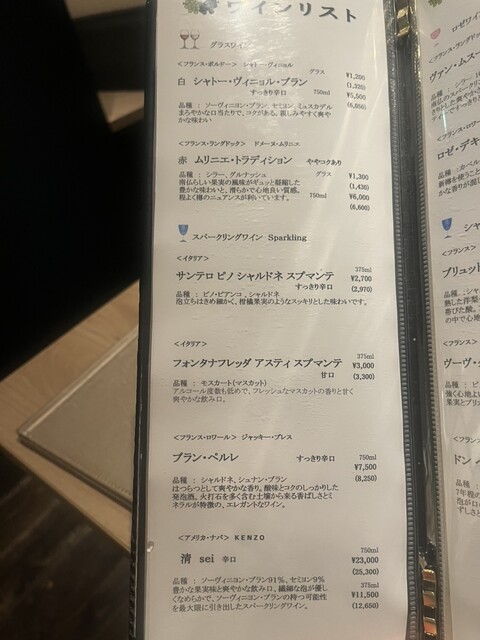 ワインリスト
グラスワイン
<フランス・ボルドー> シャトー・ヴィニョル
グラス ¥1,200
白 シャトー・ヴィニョル・ブラン (1,320)
すっきり辛口 750ml ¥5,500
(6,050)
品種 : ソーヴィニヨン・ブラン, セミヨン, ミュスカデル
まろやかな口当たりで、コクがある。親しみやすく爽や
かな味わい
<フランス・ラングドック> ドメーヌ・ムリニエ
赤 ムリニエ・トラディション ややコクあり
品種 : シラー、グルナッシュ グラス ¥1,300
南仏らしい果実の風味がギュッと凝縮した (1,430)
豊かな味わいと、滑らかで心地良い質感。 750ml ¥6,000
程よく樽のニュアンスが利いています。 (6,600)
スパークリングワイン Sparkling
<イタリア>
375ml
サンテロ ピノ シャルドネ スプマンテ ¥2,700
すっきり辛口 (2,970)
品種 : ピノ・ビアンコ、シャルドネ
泡立ちはきめ細かく、柑橘果実のようなスッキリとした味わいです。
<イタリア>
375ml
フォンタナフレッダ アスティ スプマンテ ¥3,000
甘口 (3,300)
品種 : モスカート(マスカット)
アルコール度数も低めで、フレッシュなマスカットの香りと甘く
爽やかな飲み口。
<フランス・ロワール> ジャッキー・ブレス
ブラン・ペルレ すっきり辛口 750ml
¥7,500
(8,250)
品種 : シャルドネ、シュナン・ブラン
はつらつとして爽やかな香り。酸味とコクのしっかりした
発泡酒。火打石を多く含む土壌から来る香ばしさとミ
ネラルが特徴の、エレガントなワイン。
<アメリカ・ナパ> KENZO
750ml
清 sei 辛口 ¥23,000
(25,300)
品種 : ソーヴィニヨン・ブラン91%、セミヨン9% 375ml
豊かな果実味と爽やかな飲み口、繊細な泡が優し ¥11,500
くなめらかで、ソーヴィニヨン・ブランの持つ可能性 (12,650)
を最大限に引き出したスパークリングワイン。
ロゼワイ
<フランス・ラングドッ
ヴァン・ムス
品種 : シラー、
<フランス・ロワ
ロゼ・デキ
品種 : カベル
シャ
<フランス>
ブリュット
品種 :
熟した洋梨
帯びた酸。
の中で心地
<フランス>
ヴーヴ・
品種 : ピ
強く心地よ
果実とブリ
<フランス
ドン
品種 :
7年程の